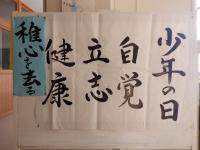 少年の日
自覚
立志
健康
稚心を去る